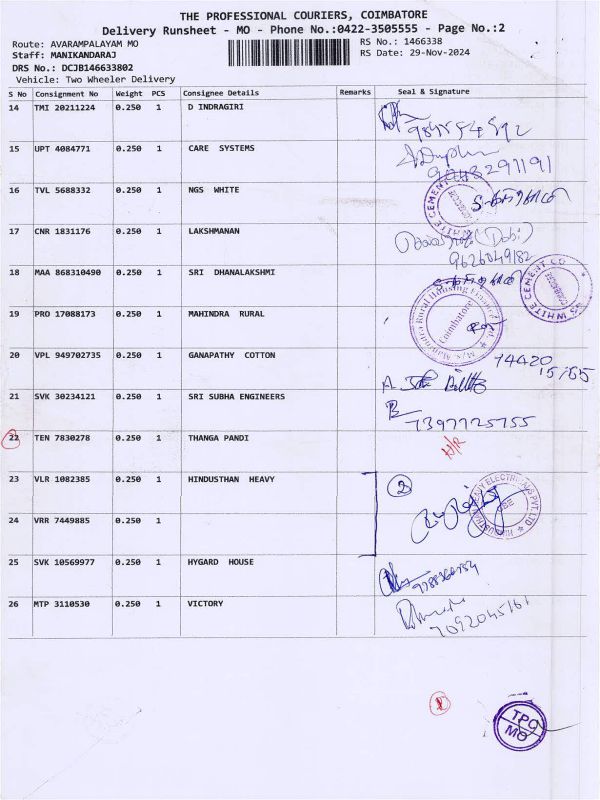 THE PROFESSIONAL COURIERS, COIMBATORE
Delivery Runsheet - MO - Phone No.:0422-3505555 - Page No.:2
Route: AVARAMPALAYAM MO
RS No.: 1466338
Staff: MANIKANDARAJ
RS Date: 29-Nov-2024
DRS No.: DCJB146633802
Vehicle: Two Wheeler Delivery
S No Consignment No Weight PCS Consignee Details Remarks Seal & Signature
14 TMI 20211224 0.250 1 D INDRAGIRI
15 UPT 4084771 0.250 1 CARE SYSTEMS
16 TVL 5688332 0.250 1 NGS WHITE
17 CNR 1831176 0.250 1 LAKSHMANAN
9626049182
18 MAA 868310490 0.250 1 SRI DHANALAKSHMI
19 PRO 17088173 0.250 1 MAHINDRA RURAL
Coimbatore
20 VPL 949702735 0.250 1 GANAPATHY COTTON
14420
21 SVK 30234121 0.250 1 SRI SUBHA ENGINEERS
7397725755
22 TEN 7830278 0.250 1 THANGA PANDI
N/R
23 VLR 1082385 0.250 1 HINDUSTHAN HEAVY
2
24 VRR 7449885 0.250 1
25 SVK 10569977 0.250 1 HYGARD HOUSE
26 MTP 3110530 0.250 1 VICTORY
7092045161
1
TPC
MO